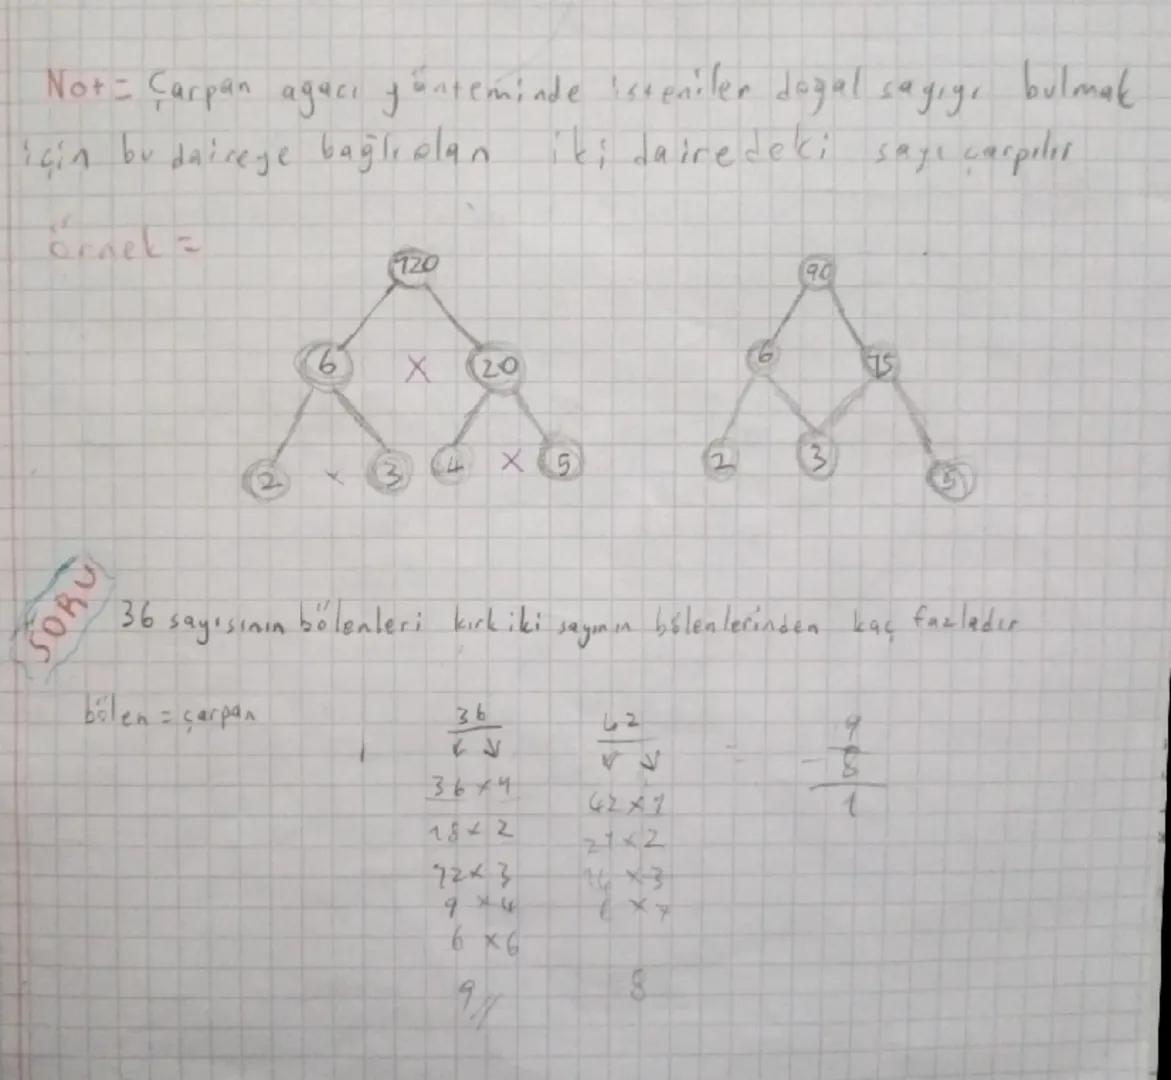 Not = Çarpan ağacı yönteminde istenilen doğal sayıyı bulmak
için bu daireye bağlı olan iki dairedeki sayı çarpılır
Örnek =
120
90
6 X 20
6 15
2 x 3 4 X 5
2 3 5
SORU
36 sayısının bölenleri kırk iki sayının bölenlerinden kaç fazladır
bölen = çarpan
36 42 = 9
- 8
36 x 1 42 x 1 1
18 x 2 21 x 2
12 x 3 14 x 3
9 x 4 6 x 7
6 x 6
9 8